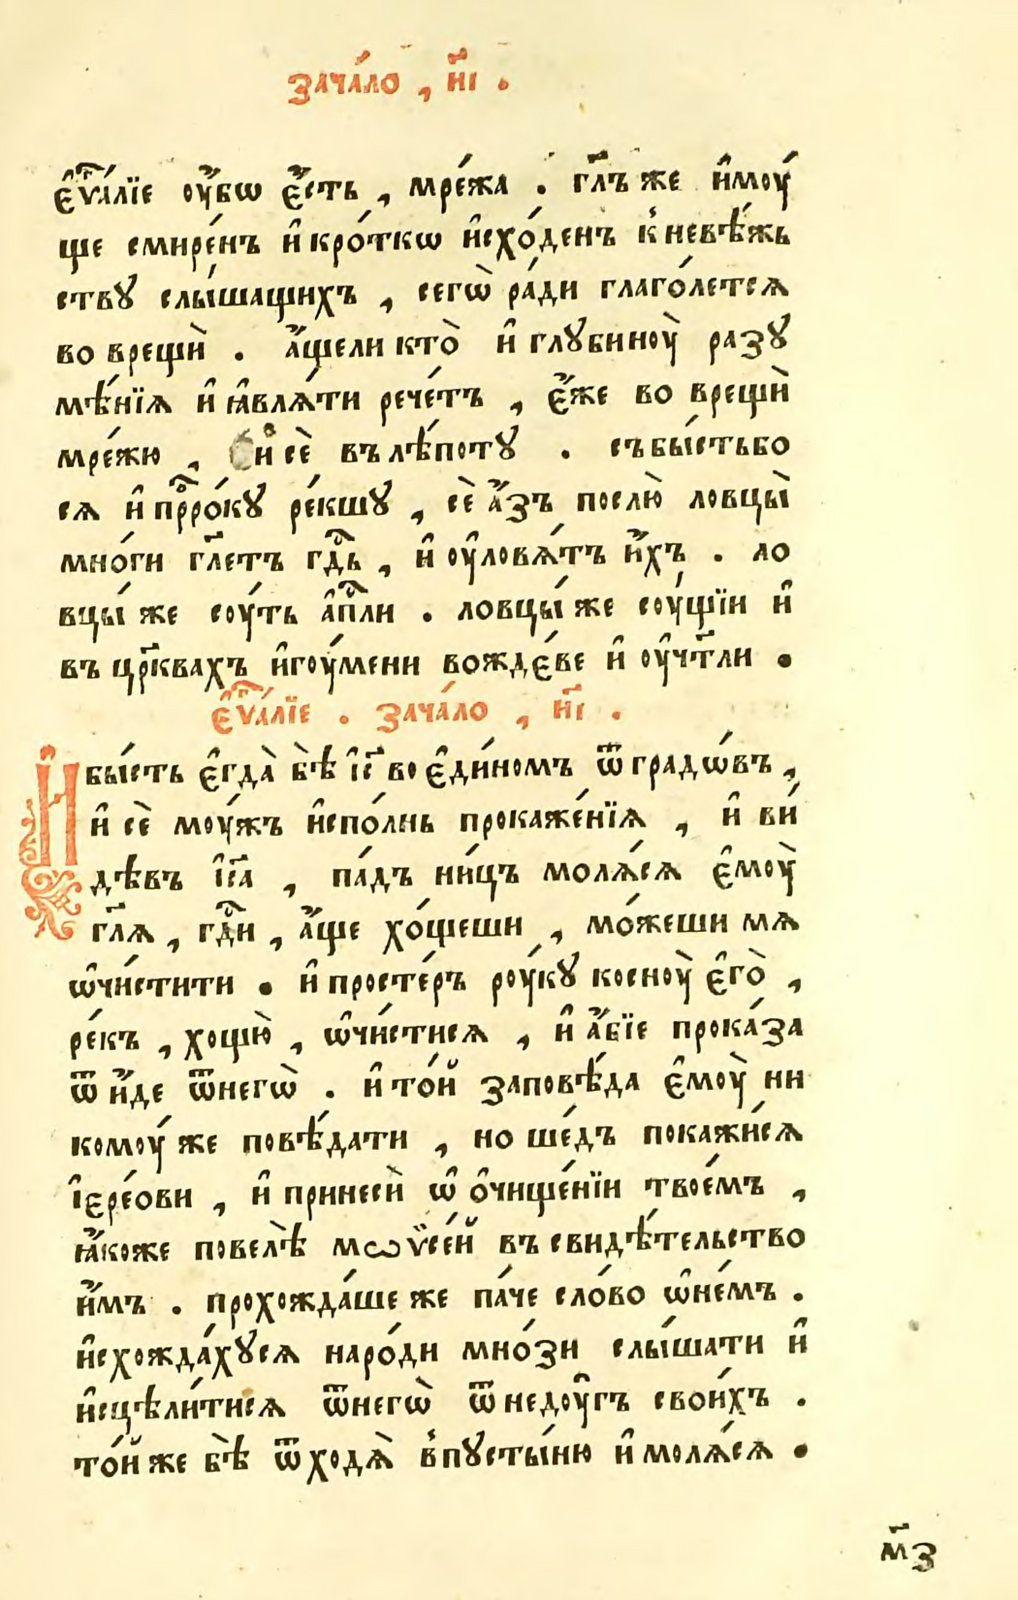 зача́ло , и҃і .
є҆ѵⷢ҇а́лїе оу҆́бѡ є҆́сть , мре́жа . гл҃ъ же и҆моу́
ще смире́нъ и҆ кро́ткѡ и҆схо́денъ к҆ невѣ́жь
ствꙋ слы́шащихъ , сегѡ̀ ра́ди глаго́летсѧ
во врещѝ . а҆́щели кто̀ и҆ глꙋбиноу̀ разꙋ
мѣ́нїѧ и҆ ꙗ҆влѧ́ти рече́тъ , є҆́же во врещѝ
мре́жю , и҆ сѐ въ лѣ́потꙋ . събы́стьбо
сѧ и҆ прⷪ҇ро́кꙋ ре́кшꙋ , сѐ а҆́зъ послю̀ ловцы̀
мно́ги гл҃етъ гдⷭ҇ь , и҆ оу҆ловѧ́тъ и҆́хъ . ло
вцы́ же соу́ть а҆пⷭ҇ли . ловцы́ же соу́щїи и҆
въ цр҃квахъ и҆гоу́мени вожде́ве и҆ оу҆чт҃ли .
є҆ѵⷢ҇а́лїе . зача́ло , и҃і .
И҆ бы́сть є҆гда̀ бѣ̀ і҆с҃ во є҆ди́номъ ѿ градѡ́въ ,
и҆ сѐ моу́жъ и҆спо́лнь прокаже́нїѧ , и҆ ви́
дѣвъ і҆с҃а , па́дъ ни́цъ молѧ́сѧ є҆моу̀
гл҃ѧ , гдⷭ҇и , а҆́ще хо́щеши , мо́жеши мѧ
ѡ҆чи́стити . и҆ просте́ръ роу́кꙋ косноу̀ є҆го̀ ,
ре́къ , хощю̀ , ѡ҆чи́стисѧ , и҆ а҆́бїе прока́за
ѿ и҆́де ѿнегѡ̀ . и҆ то́й заповѣ́да є҆моу̀ ни
комоу́ же повѣ́дати , но ше́дъ покажи́сѧ
і҆ере́ови , и҆ принесѝ ѡ҆ ѻ҆чище́нїи твое́мъ ,
ꙗ҆́коже повелѣ̀ мѡѷсе́й въ свидѣ́тельство
и҆́мъ . прохожда́ше же па́че сло́во ѡ҆не́мъ .
и҆схожда́хꙋсѧ наро́ди мно́зи слы́шати и҆
и҆сцѣли́тисѧ ѿнегѡ̀ ѿ недоу҆гъ свои́хъ .
то́й же бѣ̀ ѿходѧ̀ в҆ пꙋсты́ню и҆ молѧ́сѧ .
м҃з